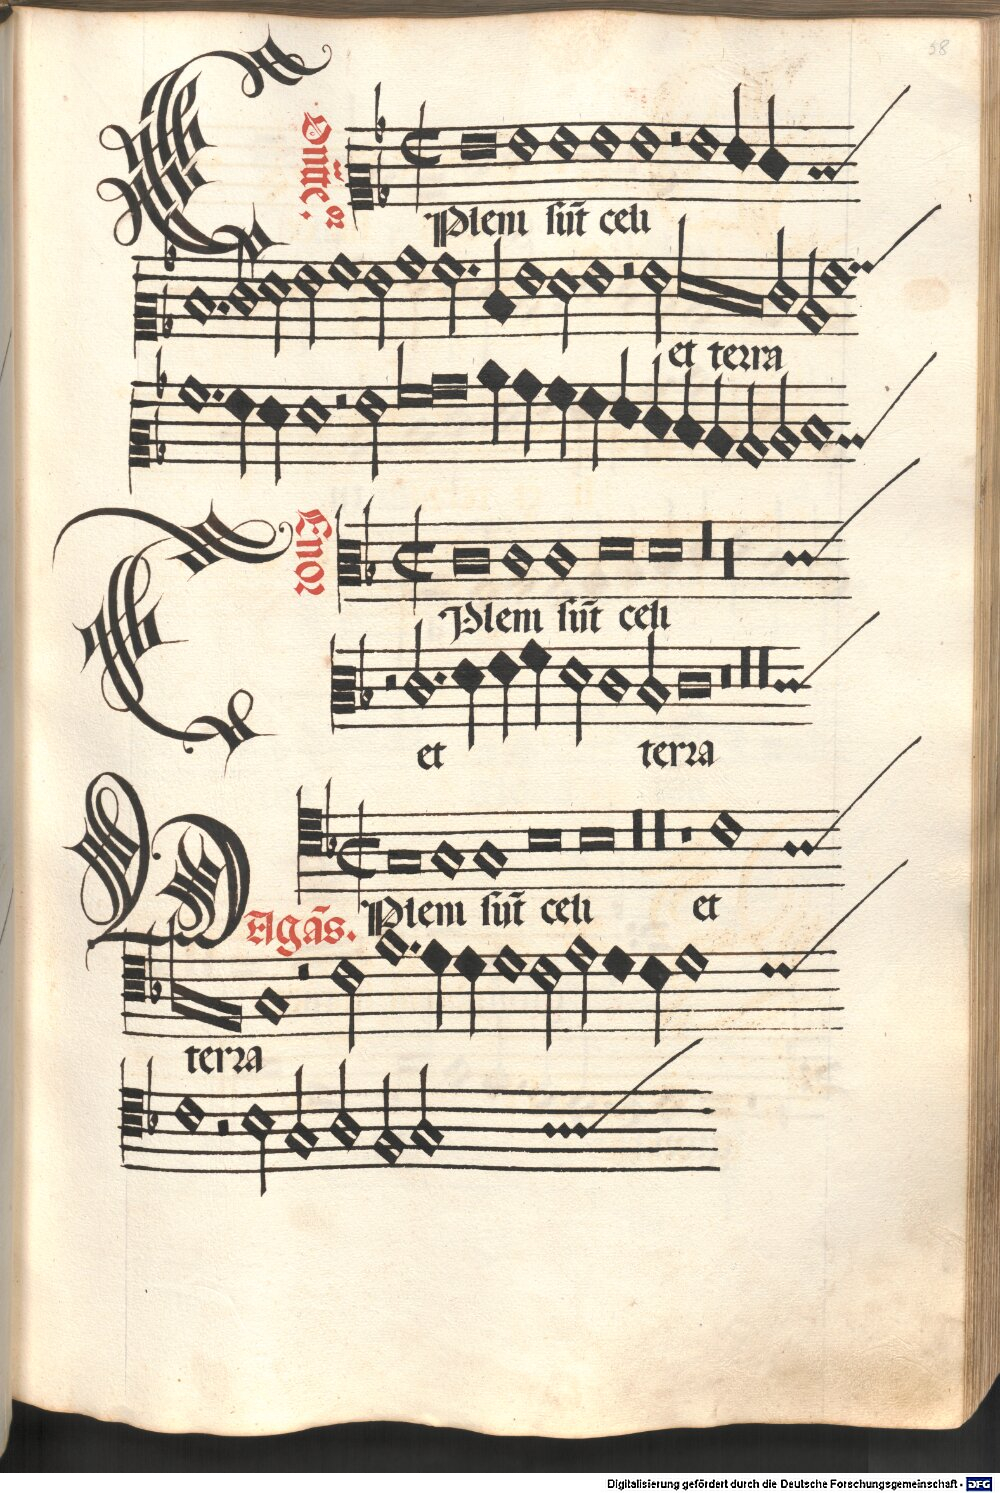 58
Pleni sūt celi
et terra
Tenor
Pleni sūt celi
et terra
Vagās.
Pleni sūt celi et
terra
Digitalisierung gefördert durch die Deutsche Forschungsgemeinschaft - DFG